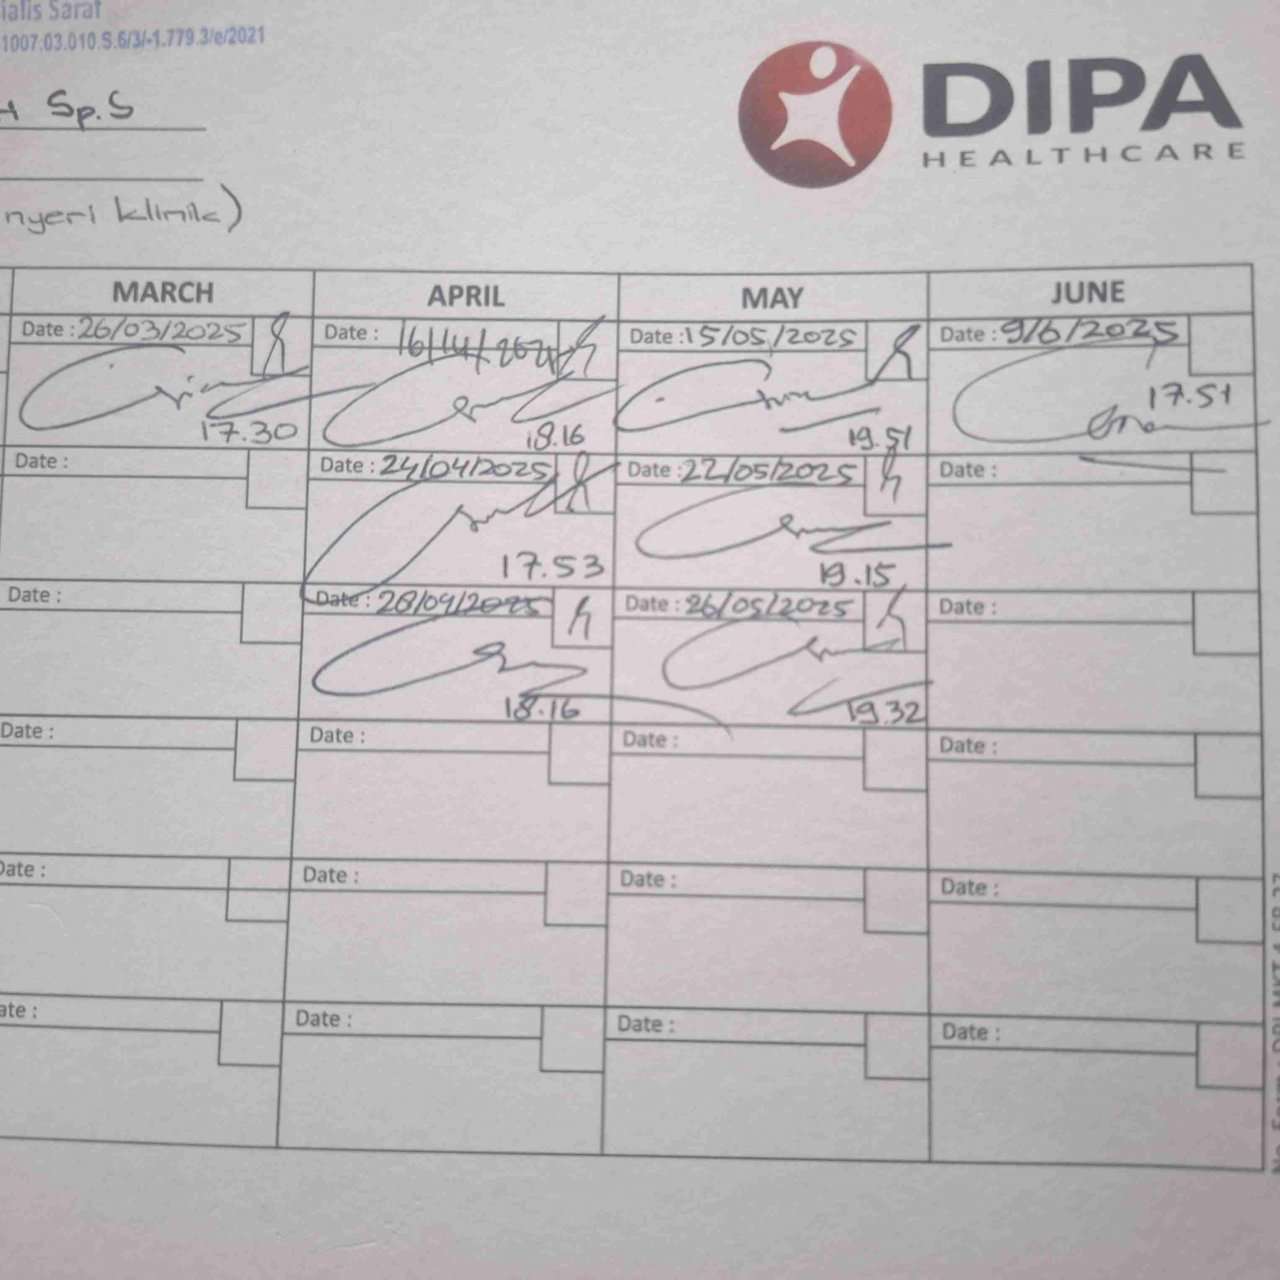 ialis Saraf
1007.03.010.S.6/3/-1.779.3/e/2021
Sp.S
nyeri klinik)
DIPA
HEALTHCARE
MARCH APRIL MAY JUNE
Date : 26/03/2025 Date : Date : 15/05/2025 Date : 9/6/2025
17.30 18.16 19.51 17.51
Date : Date : 24/04/2025 Date : 22/05/2025 Date :
17.53 19.15
Date : Date : 28/04/2025 Date : 26/05/2025 Date :
18.16 19.32
Date : Date : Date : Date :
Date : Date : Date : Date :
ate : Date : Date : Date :